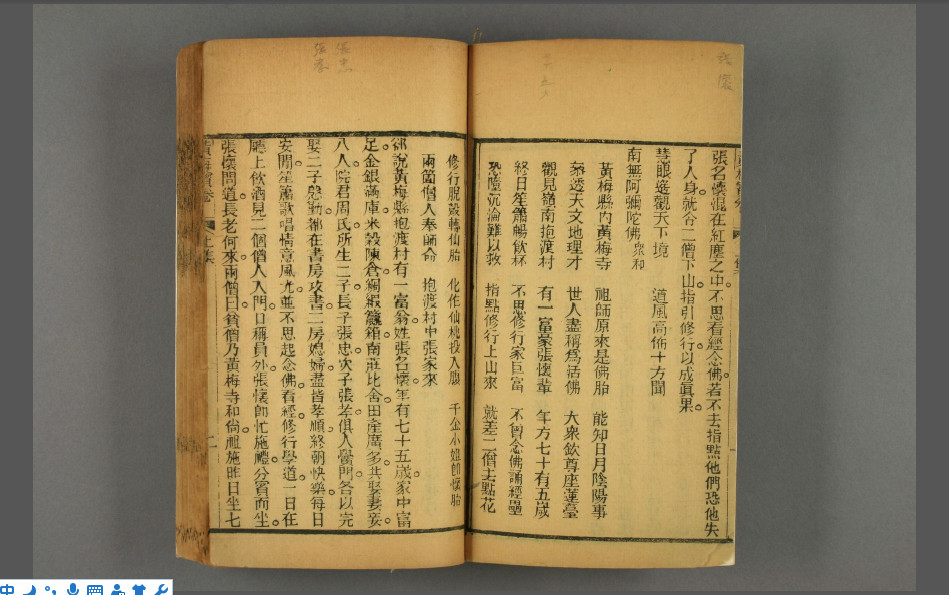 張名懷混在紅塵之中不思看經念佛若不去指點他們恐他失
了人身就令二僧下山指引修行以成眞果
慧眼遙觀天下境　道風高佈十方聞
南無阿彌陀佛　衆和
黃梅縣內黃梅寺　祖師原來是佛胎　能知日月陰陽事
參透天文地理才　世人盡稱爲活佛　大衆欽尊座蓮臺
觀見嶺南抱渡村　有一富豪張懷輩　年方七十有五歲
終日笙簫暢飲杯　不思修行家巨富　不曾念佛誦經壘
恐墮沉淪難以救　指點修行上山來　就差二僧去點花
修行脫殼轉仙胎　化作仙桃投入腹　千金小姐卽懷胎
兩箇僧人奉師命　抱渡村中張家來
却說黃梅縣抱渡村有一富翁姓張名懷年有七十五歲家中富
足金銀滿庫米穀陳倉綢緞籮箱南莊北舍田產廣多共娶妻妾
八人院君周氏所生二子長子張忠次子張孝俱入黌門各以完
娶二子慇勤都在書房攻書二房媳婦盡皆孝順終朝快樂每日
安閒笙簫歌唱情意風光並不思起念佛看經修行學道一日在
廳上飲酒見二個僧人入門口稱員外張懷卽忙施禮分賓而坐
張懷問道長老何來兩僧曰貧僧乃黃梅寺和尙祖施昨日坐七
二
張忠
張孝
張懷
中